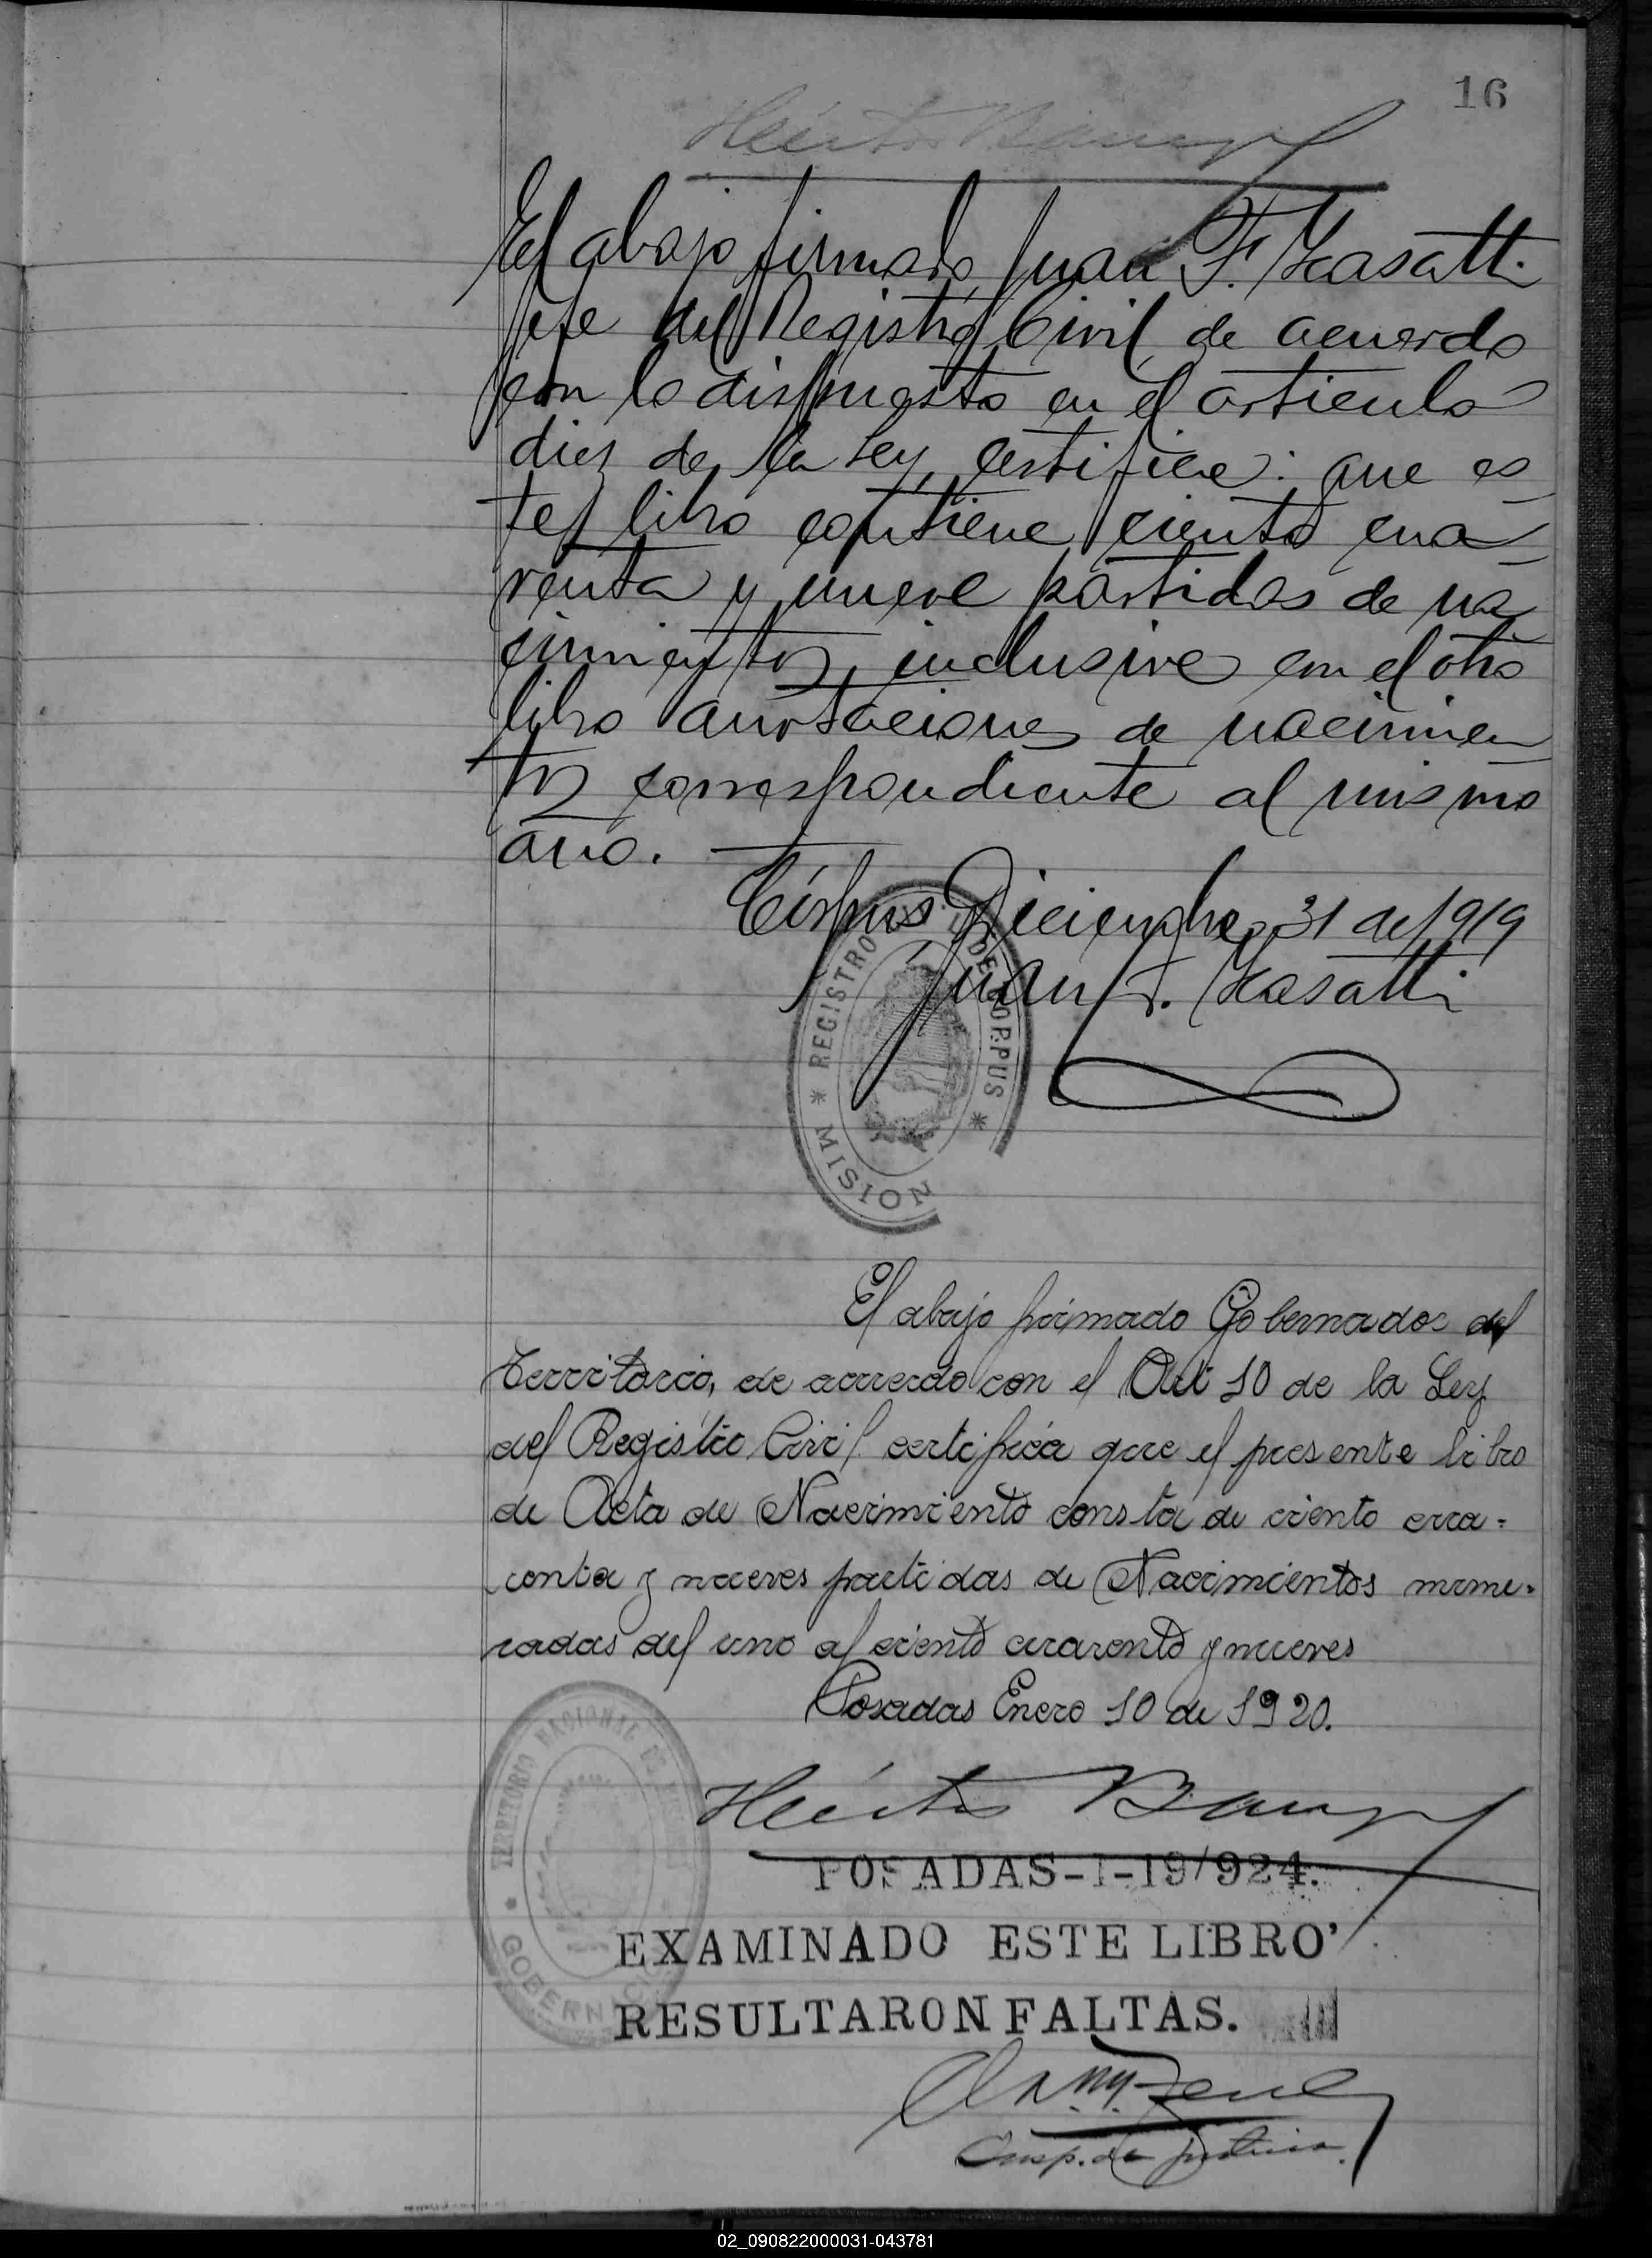 16
Héctor Barreyro
El abajo firmado, Juan F. Kasatti
jefe del Registro Civil, de acuerdo
con lo dispuesto en el articulo
diez de la ley, certifica: que es
te libro contiene ciento cua
renta y nueve partidas de na
cimientos, inclusive con el otro
libro anotaciones de nacimien
tos correspondiente al mismo
año.
Córpus Diciembre, 31 de 1919
Juan F. Kasatti
* REGISTRO DE CORPUS * MISION
El abajo firmado Gobernador del
Territorio, de acuerdo con el Art 10 de la Ley
del Registro Civil certifica que el presente libro
de Acta de Nacimiento consta de ciento cua=
renta y nueves partidas de Nacimientos nume-
radas del uno al ciento cuarenta y nueves
Posadas Enero 10 de 1920.
TERRITORIO NACIONAL DE
GOBERN
Héctor Barreyro
POSADAS-I-19/924.
EXAMINADO ESTE LIBRO
RESULTARON FALTAS.
Insp. de Justicia.
02_090822000031-043781